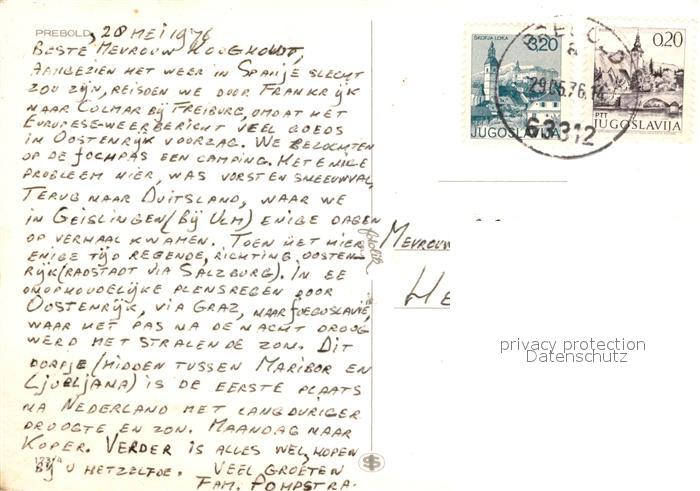 PREBOLD, 28 MEI 1976
BESTE MEVROUW HOOGHOUDT,
AANGEZIEN HET WEER IN SPANJE SLECHT
ZOU ZIJN, REISDEN WE DOOR FRANKRIJK
NAAR COLMAR BIJ FREIBURG, OMDAT HET
EUROPESE-WEERBERICHT VEEL GOEDS
IN OOSTENRIJK VOORZAG. WE BEZOCHTEN
OP DE FOCHPAS EEN CAMPING. HET ENIGE
PROBLEEM HIER, WAS VORST EN SNEEUWVAL,
TERUG NAAR DUITSLAND, WAAR WE
IN GEISLINGEN (BIJ ULM) ENIGE DAGEN
OP VERHAAL KWAMEN. TOEN HET HIER
ENIGE TIJD REGENDE, RICHTING OOSTEN-
RIJK (RADSTADT VIA SALZBURG). IN EE
ONOPHOUDELIJKE PLENSREGEN DOOR
OOSTENRIJK, VIA GRAZ, NAAR JOEGOSLAVIE,
WAAR HET PAS NA DE NACHT DROOG
WERD MET STRALENDE ZON. DIT
DORPJE (MIDDEN TUSSEN MARIBOR EN
LJUBLJANA) IS DE EERSTE PLAATS
NA NEDERLAND MET LANGDURIGER
DROOGTE EN ZON. MAANDAG NAAR
KOPER. VERDER IS ALLES WEL, HOPEN
BIJ U HETZELFDE. VEEL GROETEN
FAM. POMPSTRA.
ŠKOFJA LOKA
3.20
JUGOSLAVIJA
0.20
PTT
JUGOSLAVIJA
29.05.76.14
63312
MEVROUW
HE
privacy protection
Datenschutz